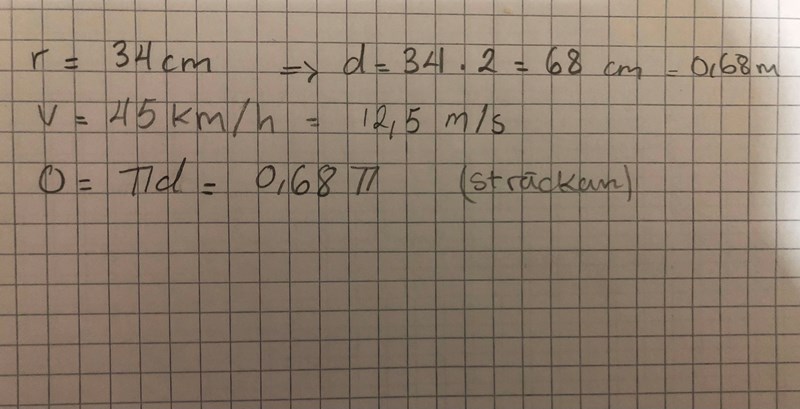 r = 34 cm => d = 34 · 2 = 68 cm = 0,68 m
V = 45 km/h = 12,5 m/s
O = πd = 0,68 π (sträckan)